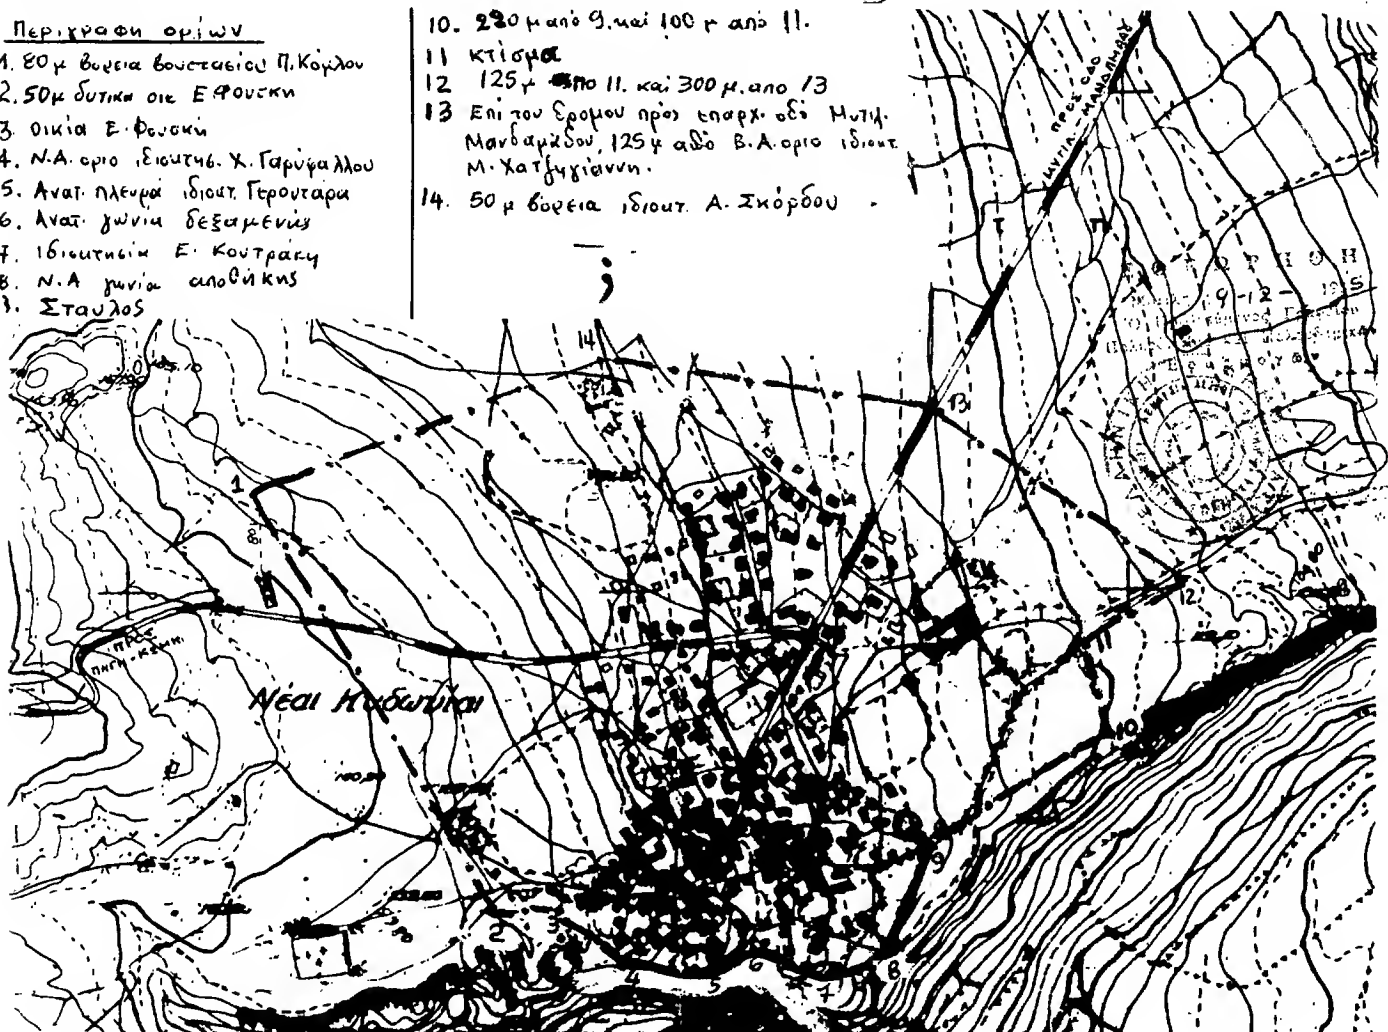 Περιγραφη οριων
1. 80 μ βορεια βουστασίου Π. Κόμλου
2. 50μ δυτικα οικ Ε Φουσκη
3. οικία Ε. Φουσκη
4. Ν.Α. οριο ιδιοκτησ. Χ. Γαρύφαλλου
5. Ανατ. πλευρά ιδιοκτ. Γερουταρα
6. Ανατ. γωνια δεξαμενής
7. Ιδιοκτησία Ε. Κουτράκη
8. Ν.Α γωνία αποθήκης
9. Σταυλος
10. 220 μ από 9. και 100 μ από 11.
11 κτίσμα
12 125 μ απο 11. και 300 μ. απο 13
13 Επί του δρομου προς επαρχ. οδό Μυτιλ.
Μανδαμάδου, 125 μ από Β.Α. οριο ιδιοκτ
Μ. Χατζηγιάννη.
14. 50 μ βόρεια ιδιοκτ. Α. Σκόρδου
ΠΡΟΣ ΟΔΟ
ΜΥΤΙΛ.-ΜΑΝΔΑΜΑΔΟΥ
Τ Π
9-12-
14
13
1
80
12
ΠΡΟΣ
ΠΗΓΗ-ΚΩΜΗ
Νέαι Κυδωνίαι
11
10
9
2
3
4
5
6
7
8